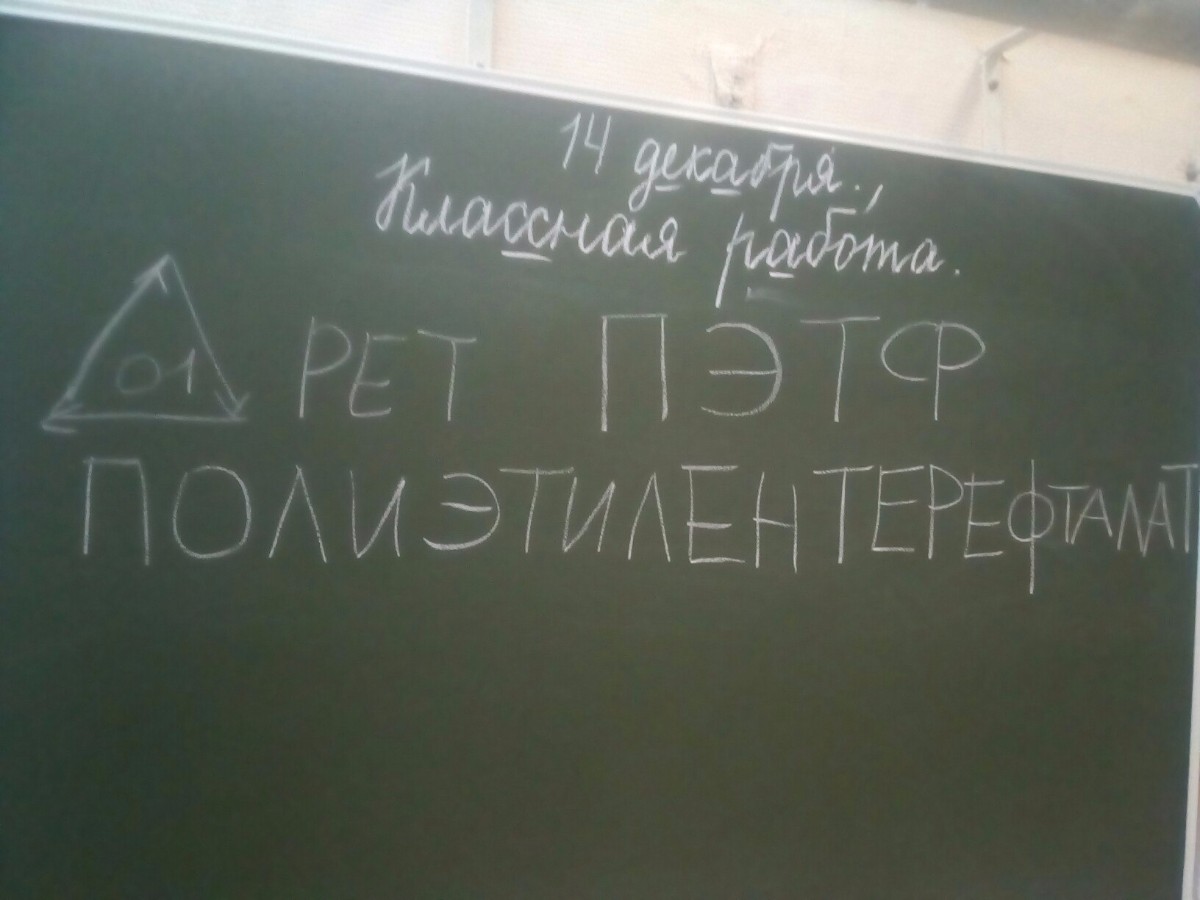 14 декабря.,
Классная работа.
01 PET ПЭТФ
ПОЛИЭТИЛЕНТЕРЕФТАЛАТ